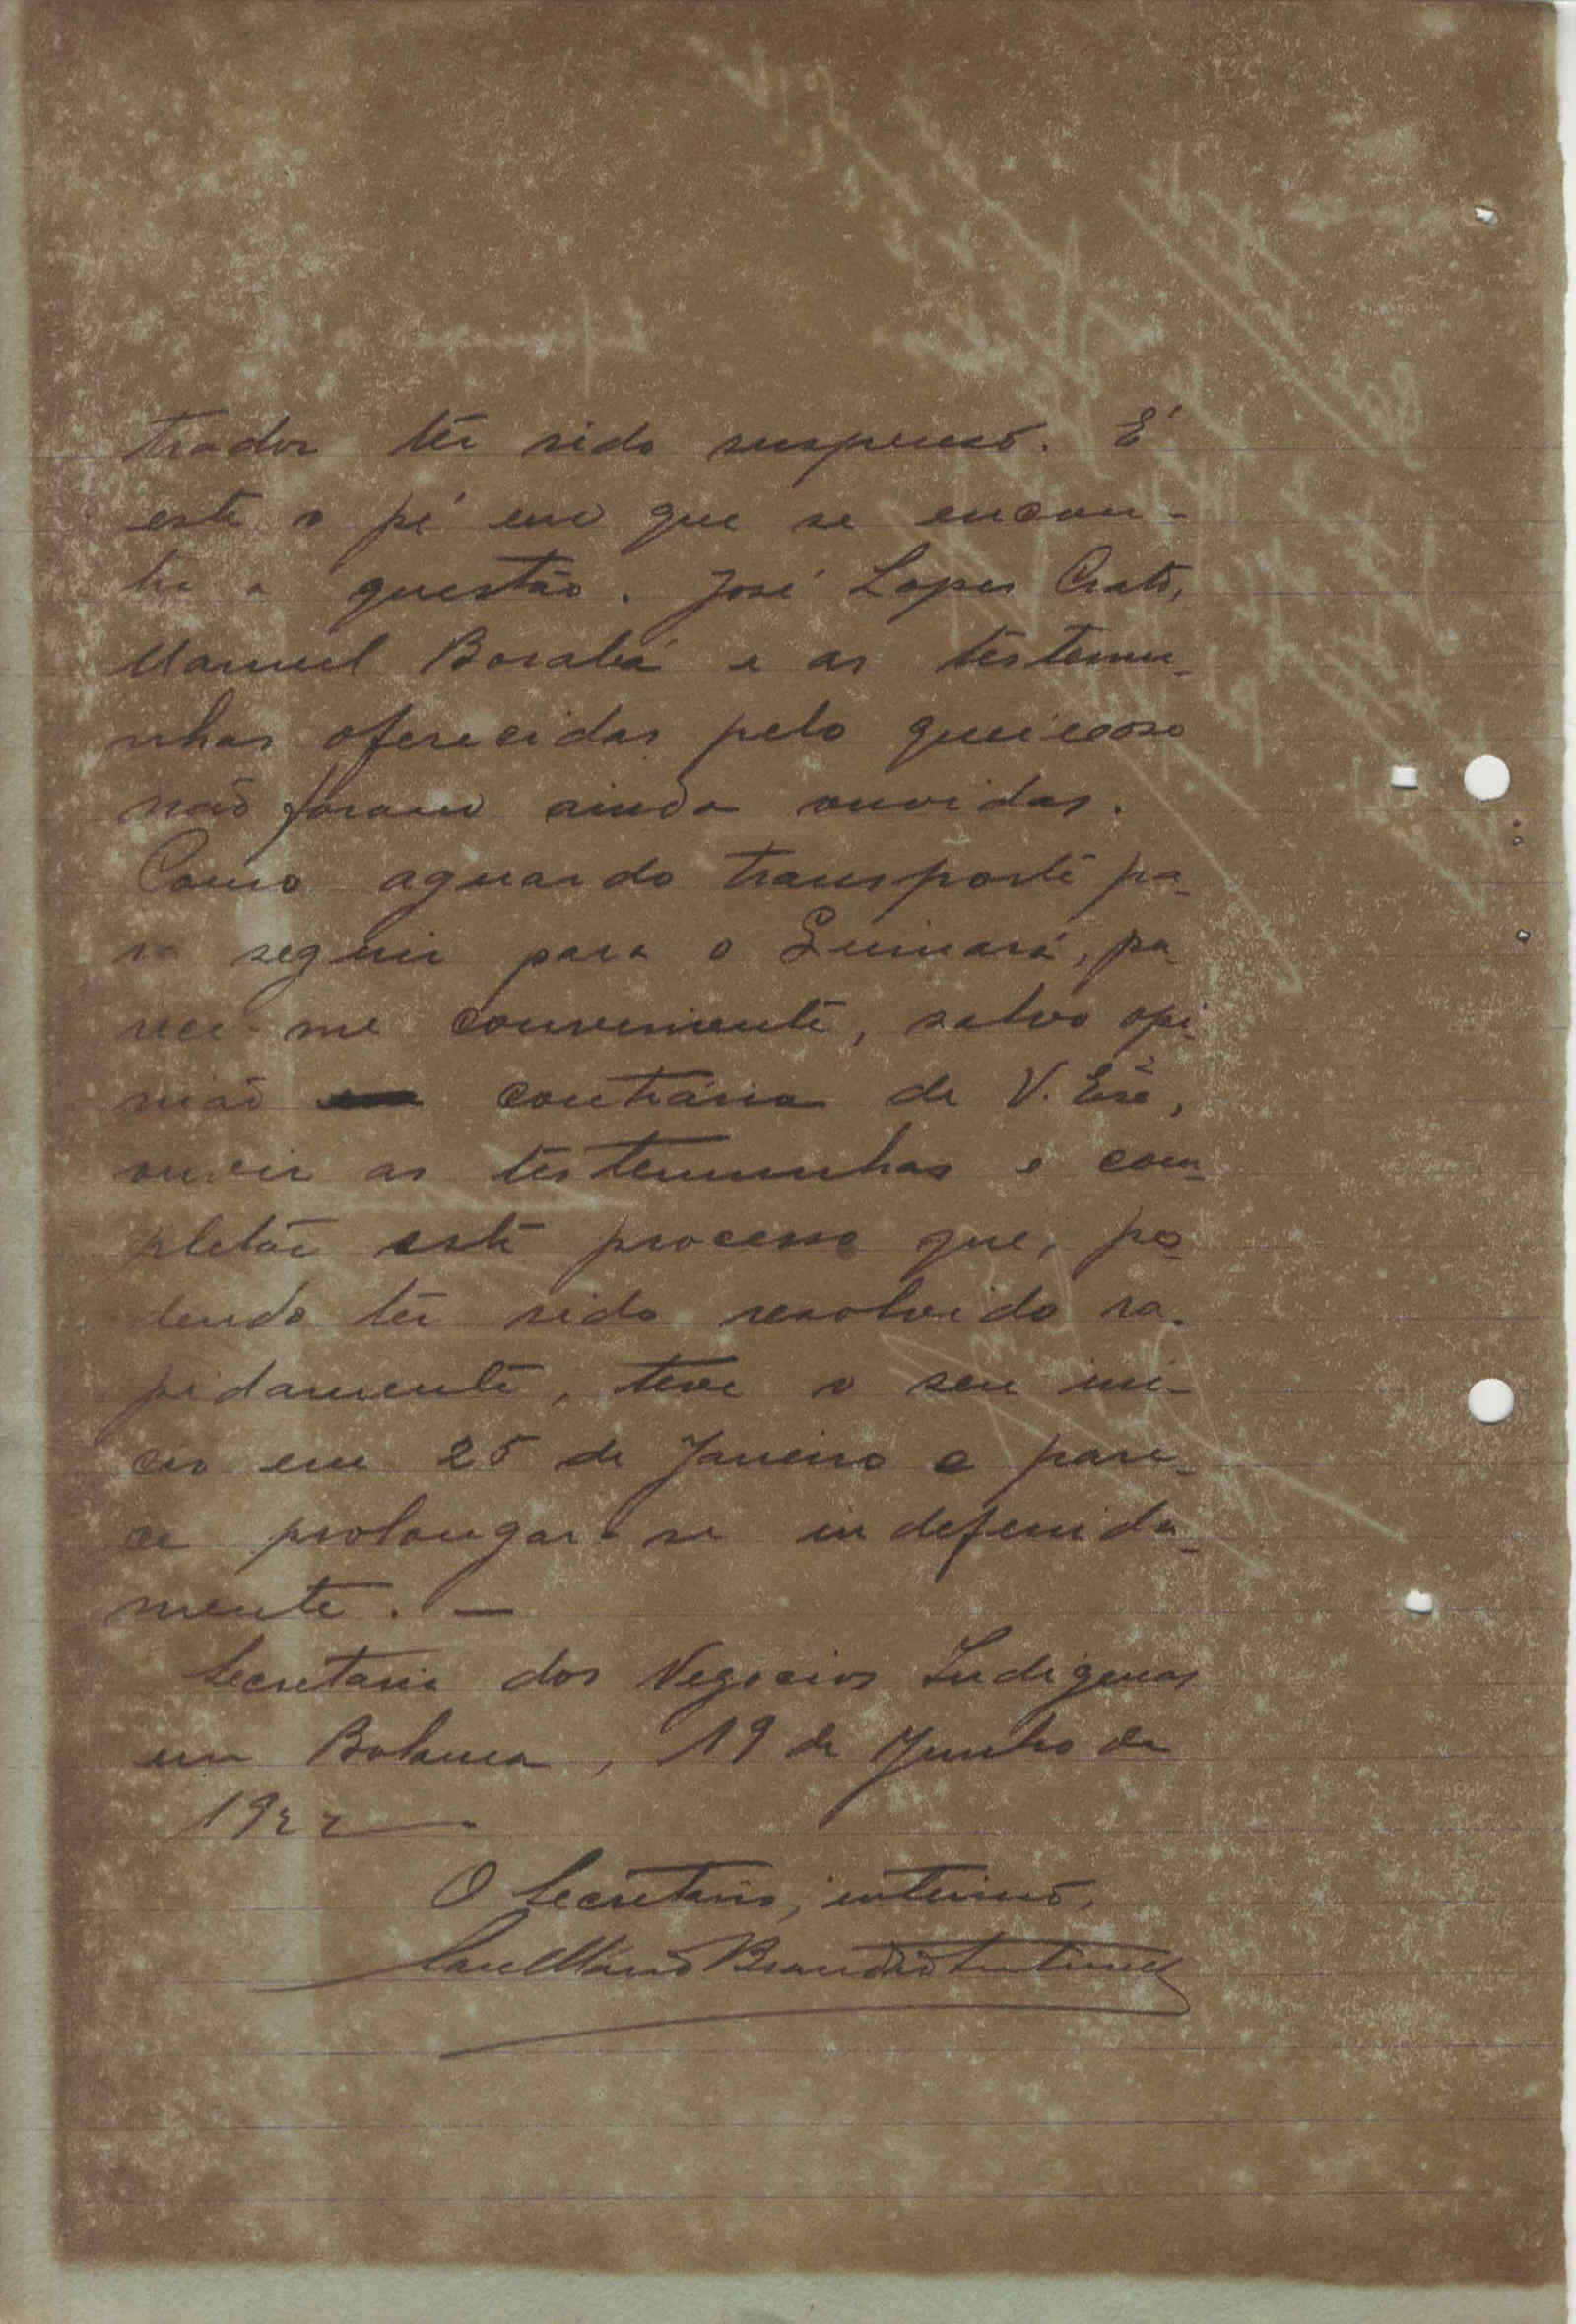 trador ter sido suspenso. É
este o pé em que se encon-
tra a questão. José Lopes Crato,
Manuel Borabá e as testemu-
nhas oferecidas pelo queixoso
não foram ainda ouvidas.
Como aguardo transporte pa-
ra seguir para o Quinará, pa-
rece-me conveniente, salvo opi-
nião contrária de V. Exª,
ouvir as testemunhas e com-
pletar este processo que, po-
dendo ter sido resolvido ra-
pidamente, teve o seu iní-
cio em 25 de Janeiro e pare-
ce prolongar-se indefenida-
mente. —
Secretaria dos Negocios Indígenas
em Bolama, 19 de Junho de
1922
O Secretario, interino,
Brandão